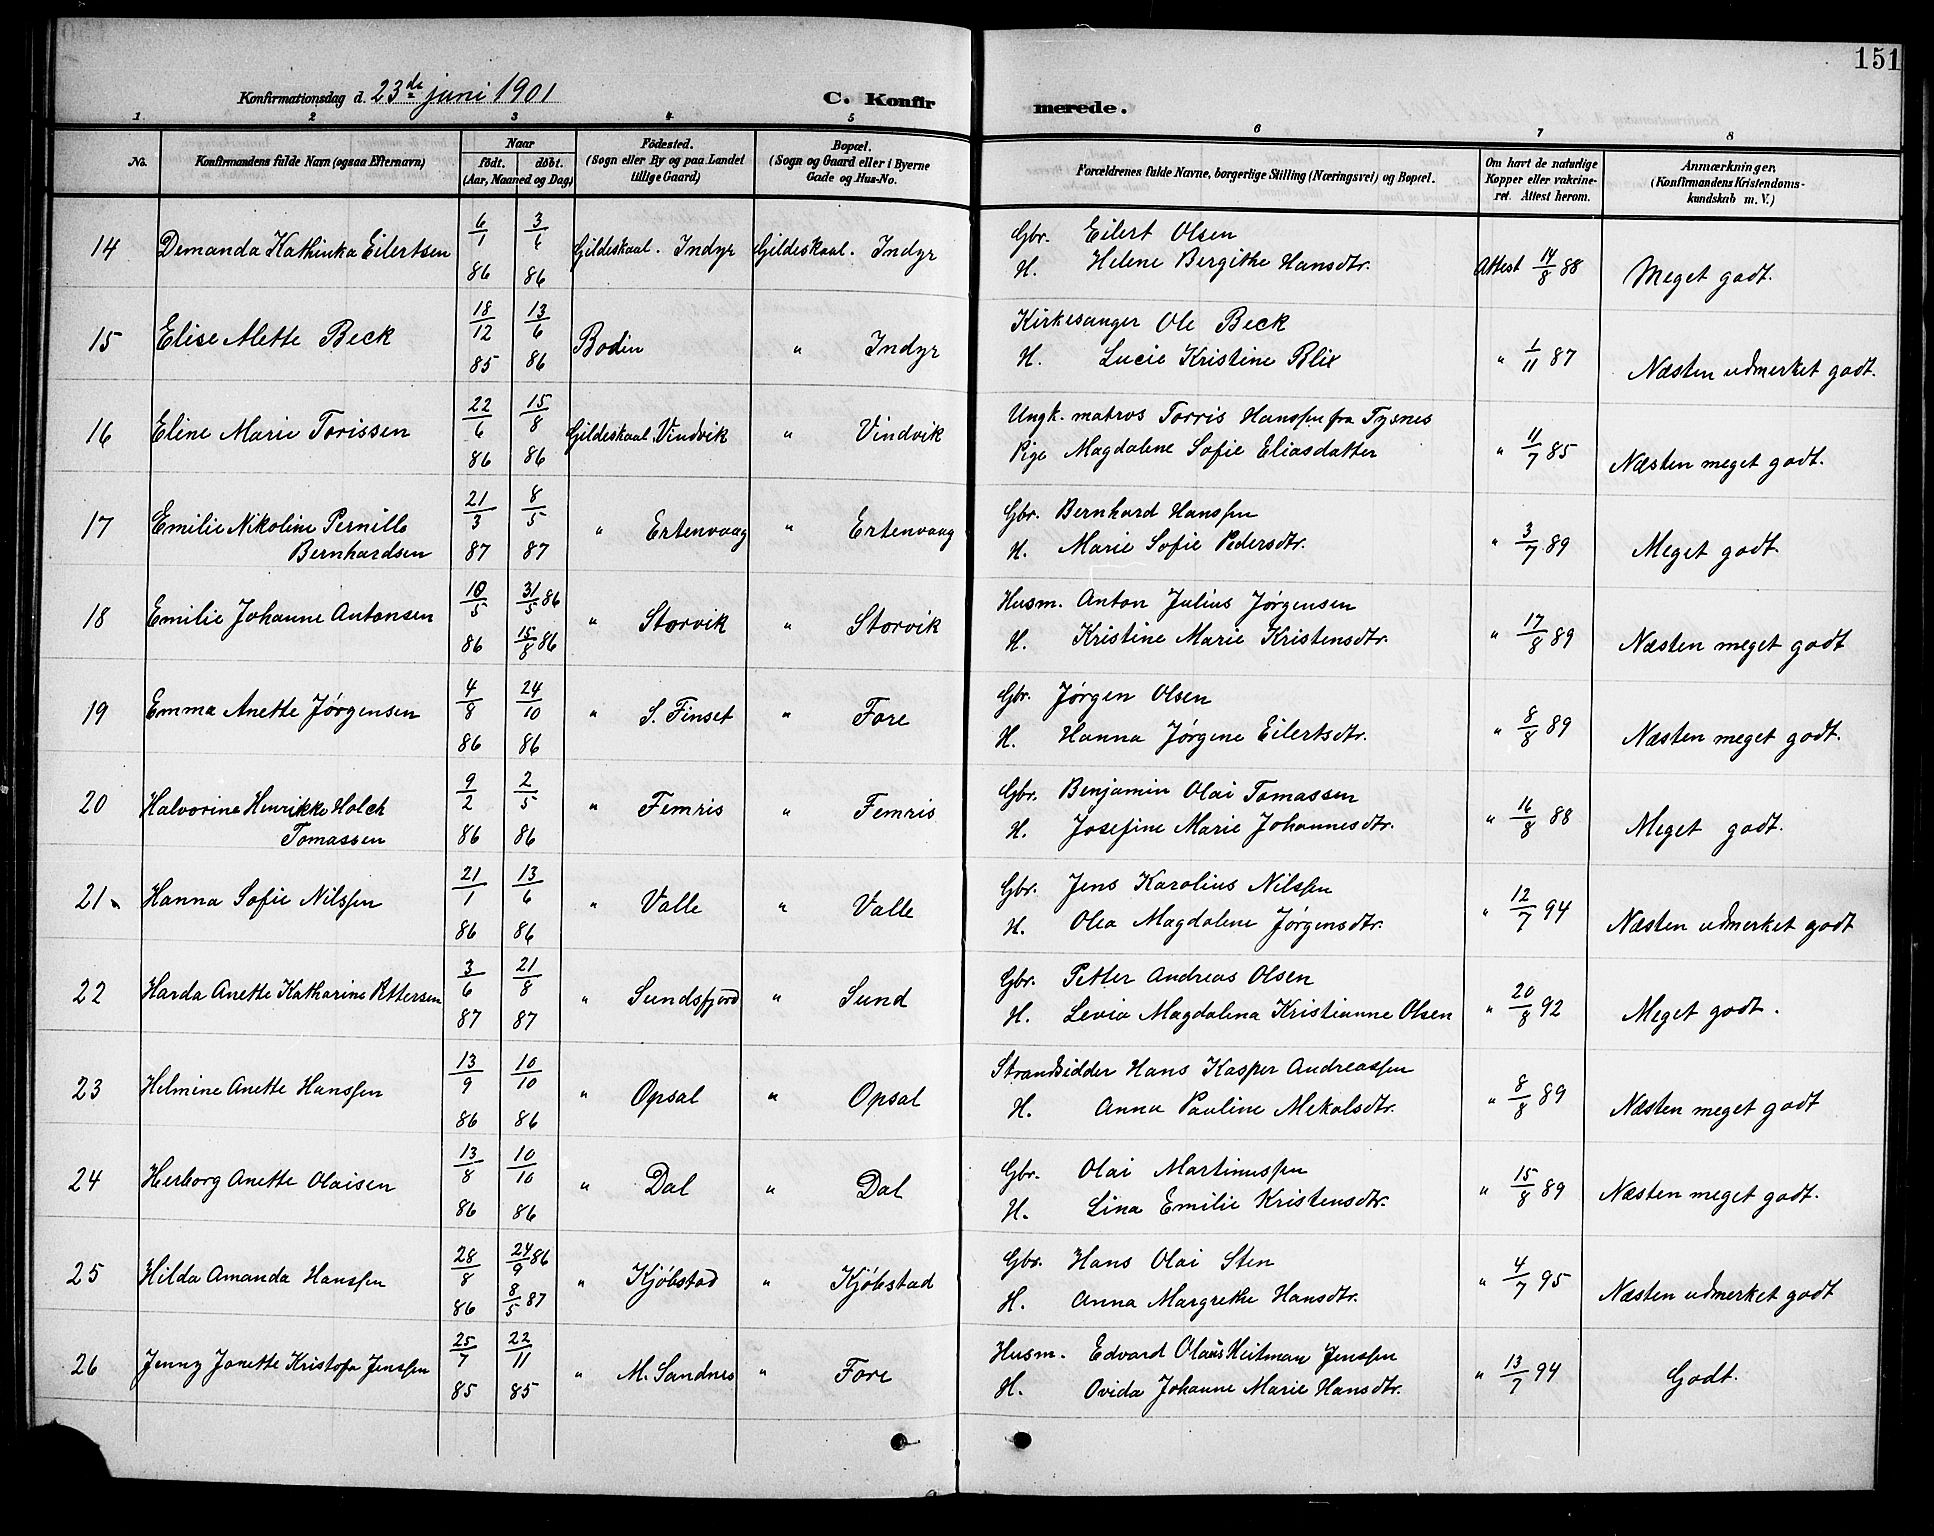 151
Konfirmationsdag d. 23de juni 1901 C. Konfirmerede.
1 2 3 4 5 6 7 8
No. Konfirmandens fulde Navn (ogsaa Efternavn) Naar født. døbt. (Aar, Maaned og Dag) Fødested. (Sogn eller By og paa Landet tillige Gaard) Bopæl. (Sogn og Gaard eller i Byerne Gade og Hus-No. Forældrenes fulde Navne, borgerlige Stilling (Næringsvei) og Bopæl. Om havt de naturlige Kopper eller vakcineret. Attest herom. Anmærkninger, (Konfirmandens Kristendomskundskab m. V.)
14 Demanda Kathinka Eilertsen 6/1 86 3/6 86 Gildeskaal. Indyr Gildeskaal. Indyr Gbr. Eilert Olsen
H. Helene Bergithe Hansdtr. Attest 14/8 88 Meget godt.
15 Elise Mette Beck 18/12 85 13/6 86 Bodin " Indyr Kirkesanger Ole Beck
H. Lucie Kristine Blix " 1/11 87 Næsten udmerket godt.
16 Eline Marie Torissen 22/6 86 15/8 86 Gildeskaal. Vindvik " Vindvik Ungk. matros Torris Hanssen fra Tysnes
Pige Magdalene Sofie Eliasdatter " 11/7 85 Næsten meget godt.
17 Emilie Nikoline Pernille
Bernhardsen 21/3 87 8/5 87 " Ertenvaag " Ertenvaag Gbr. Bernhard Hanssen
H. Marie Sofie Pedersdtr. " 3/7 89 Meget godt.
18 Emilie Johanne Antonsen 10/5 86 31/5 86 15/8 86 " Storvik " Storvik Husm. Anton Julius Jørgensen
H. Kristine Marie Kristensdtr. " 17/8 89 Næsten meget godt
19 Emma Anette Jørgensen 4/8 86 24/10 86 " S. Finset " Fore Gbr. Jørgen Olsen
H. Hanna Jørgine Eilertsdtr. " 8/8 89 Næsten meget godt.
20 Halvorine Henrikke Holch
Tomassen 9/2 86 2/5 86 " Femris " Femris Gbr. Benjamin Olai Tomassen
H. Josefine Marie Johannesdtr. " 16/8 88 Meget godt.
21 Hanna Sofie Nilssen 21/1 86 13/6 86 " Valle " Valle Gbr. Jens Karolius Nilssen
H. Olea Magdalene Jørgensdtr. " 12/7 94 Næsten udmerket godt
22 Harda Anette Katharine Pettersen 3/6 87 21/8 87 " Sundsfjord " Sund Gbr. Petter Andreas Olsen
H. Levia Magdalena Kristianne Olsen " 20/8 92 Meget godt.
23 Helmine Anette Hanssen 13/9 86 10/10 86 " Opsal " Opsal Strandsidder Hans Kasper Andreassen
H. Anna Pauline Mekalsdtr. " 8/8 89 Næsten meget godt
24 Herborg Anette Olaisen 13/8 86 10/10 86 " Dal " Dal Gbr. Olai Martinussen
H. Lina Emilie Kristensdtr. " 15/8 89 Næsten meget godt.
25 Hilda Amanda Hanssen 28/8 86 24/9 86 8/5 87 " Kjøbstad " Kjøbstad Gbr. Hans Olai Sten
H. Anna Margrethe Hansdtr. " 4/7 95 Næsten udmerket godt
26 Jenny Janette Kristofa Jenssen 25/7 85 22/11 85 " M. Sandnes " Fore Husm. Edvard Olaus Heitman Jenssen
H. Ovida Johanne Marie Hansdtr. " 13/7 94 Godt.